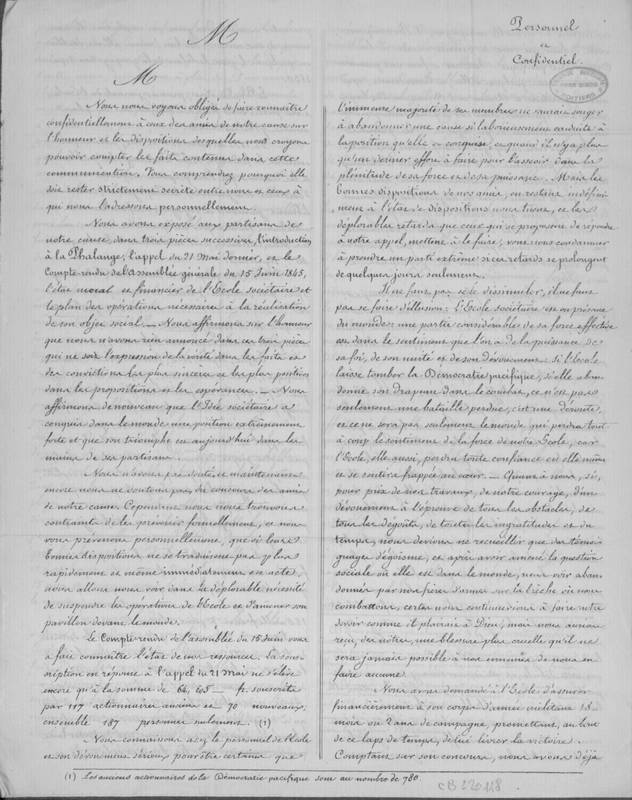 Personnel
et
Confidentiel.
M
M
Nous nous voyons obligés de faire connaître
confidentiellement à ceux des amis de notre cause sur
l'honneur et les dispositions desquels nous croyons
pouvoir compter les faits contenus dans cette
communication. Vous comprendrez pourquoi elle
doit rester strictement secrète entre nous et ceux à
qui nous l'adressons personnellement.
Nous avons exposé aux partisans de
notre cause dans trois pièces successives, l'introduction
à la Phalange, l'appel du 21 Mai dernier, et le
Compte rendu de l'assemblée générale du 15 Juin 1845,
l'état moral et financier de l'Ecole sociétaire et
le plan des opérations nécessaires à la réalisation
de son objet social. — Nous affirmons sur l'honneur
que nous n'avons rien annoncé dans ces trois pièces
qui ne soit l'expression de la vérité dans les faits et
des convictions les plus sincères et les plus positives
dans les propositions et les espérances. — Nous
affirmons de nouveau que l'Idée sociétaire a
conquis dans le monde une position extrêmement
forte et que son triomphe est aujourd'hui dans les
mains de ses partisans.
Nous n'avons pas douté et maintenant
encore nous ne doutons pas du concours des amis
de notre cause. Cependant nous nous trouvons
contraints de les prévenir formellement, et nous
vous prévenons personnellement, que si leurs
bonnes dispositions ne se traduisent pas plus
rapidement et même immédiatement en actes,
nous allons nous voir dans la déplorable nécessité
de suspendre les opérations de l'Ecole et d'amener son
pavillon devant le monde.
Le Compte rendu de l'assemblée du 15 Juin vous
a fait connaître l'état de nos ressources. La sous-
cription en réponse à l'appel du 21 Mai ne s'élève
encore qu'à la somme de 64,105 — fr. souscrite
par 117 actionnaires anciens et 70 nouveaux,
ensemble 187 personnes seulement. (1)
Nous connaissons assez le personnel de l'Ecole
et son dévouement sérieux pour être certains que
l'immense majorité de ses membres ne saurait songer
à abandonner une cause si laborieusement conduite à
la position qu'elle a conquise, et quand il n'y a plus
qu'un dernier effort à faire pour l'asseoir dans la
plénitude de sa force et de sa puissance. Mais les
bonnes dispositions de nos amis, en restant indéfini-
ment à l'état de dispositions inactives, et les
déplorables retards que ceux qui se proposent de répondre
à notre appel, mettent à le faire, vont nous condamner
à prendre un parti extrême si ces retards se prolongent
de quelques jours seulement.
Il ne faut pas se le dissimuler, il ne faut
pas se faire d'illusion: l'Ecole sociétaire est en présence
du monde: une partie considérable de sa force effective
est dans le sentiment que l'on a de la puissance de
sa foi, de son unité et de son dévouement. Si l'Ecole
laisse tomber la Démocratie pacifique, si elle aban-
donne son drapeau dans le combat, ce n'est pas
seulement une bataille perdue, c'est une déroute,
et ce ne sera pas seulement le monde qui perdra tout
à coup le sentiment de la force de notre Ecole, car
l'Ecole, elle aussi, perdra toute confiance en elle même
et se sentira frappée au cœur. — Quant à nous, si,
pour prix de nos travaux, de notre courage, d'un
dévouement à l'épreuve de tous les obstacles, de
tous les dégoûts, de toutes les ingratitudes et du
temps, nous devions ne recueillir que des témoi-
gnages d'égoïsme, et après avoir amené la question
sociale où elle est dans le monde, nous voir aban-
donnés par nos frères d'armes sur la brèche où nous
combattons, certes nous continuerions à faire notre
devoir comme il plairait à Dieu, mais nous aurions
reçu, des nôtres, une blessure plus cruelle qu'il ne
sera jamais possible à nos ennemis de nous en
faire aucune.
Nous avons demandé à l'Ecole d'assurer
financièrement à son corps d'armée militant 18
mois ou 2 ans de campagne, promettant, au bout
de ce laps de temps, de lui livrer la victoire.
Comptant sur son concours, nous avons déjà
(1) Les anciens actionnaires de la Démocratie pacifique sont au nombre de 780.
CB 220118